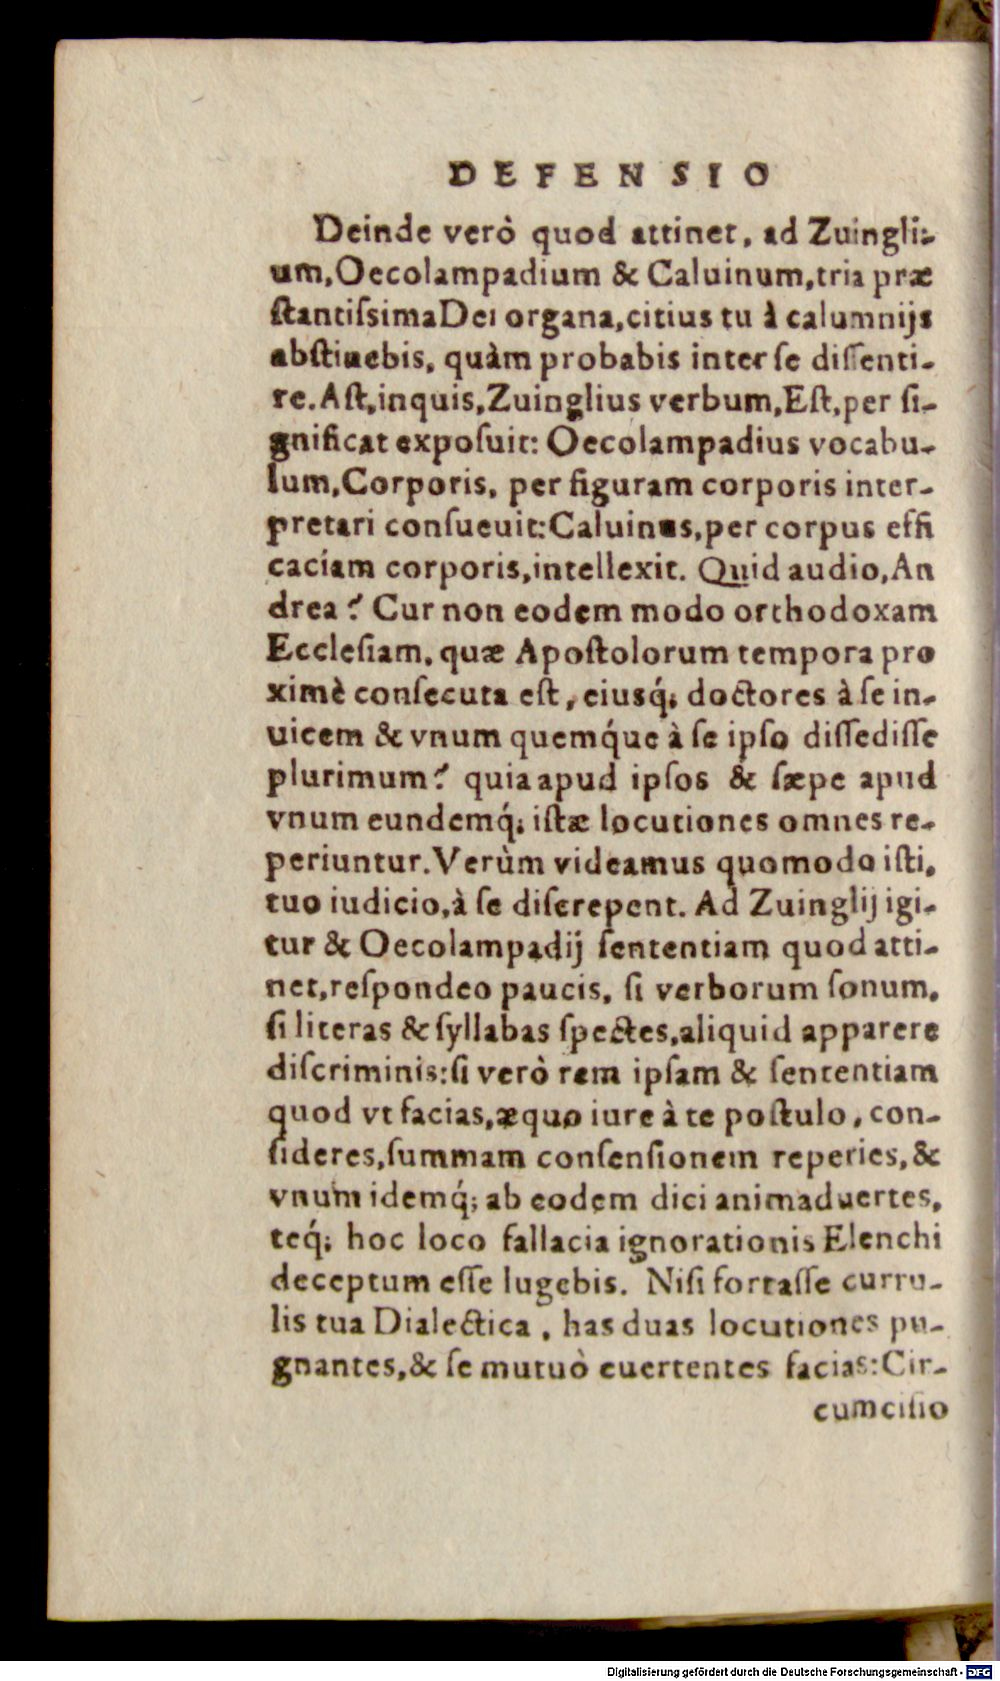 DEFENSIO
Deinde verò quod attinet, ad Zuingli-
um, Oecolampadium & Caluinum, tria præ
ſtantiſsima Dei organa, citius tu à calumnijs
abſtinebis, quàm probabis inter ſe diſſenti-
re. Aſt, inquis, Zuinglius verbum, Eſt, per ſi-
gnificat expoſuit: Oecolampadius vocabu-
lum, Corporis, per figuram corporis inter-
pretari conſueuit: Caluinus, per corpus effi
caciam corporis, intellexit. Quid audio, An
drea? Cur non eodem modo orthodoxam
Eccleſiam, quæ Apoſtolorum tempora pro
ximè conſecuta eſt, eiusq́; doctores à ſe in-
uicem & vnum quemq́ue à ſe ipſo diſſediſſe
plurimum? quia apud ipſos & ſæpe apud
vnum eundemq́; iſtæ locutiones omnes re-
periuntur. Verùm videamus quomodo iſti,
tuo iudicio, à ſe diſcrepent. Ad Zuinglij igi-
tur & Oecolampadij ſententiam quod atti-
net, reſpondeo paucis, ſi verborum ſonum,
ſi literas & ſyllabas ſpectes, aliquid apparere
diſcriminis: ſi verò rem ipſam & ſententiam
quod vt facias, æquo iure à te poſtulo, con-
ſideres, ſummam conſenſionem reperies, &
vnum idemq́; ab eodem dici animaduertes,
teq́; hoc loco fallacia ignorationis Elenchi
deceptum eſſe lugebis. Niſi fortaſſe curru-
lis tua Dialectica, has duas locutiones pu-
gnantes, & ſe mutuò euertentes facias: Cir-
cumciſio
Digitalisierung gefördert durch die Deutsche Forschungsgemeinschaft - DFG